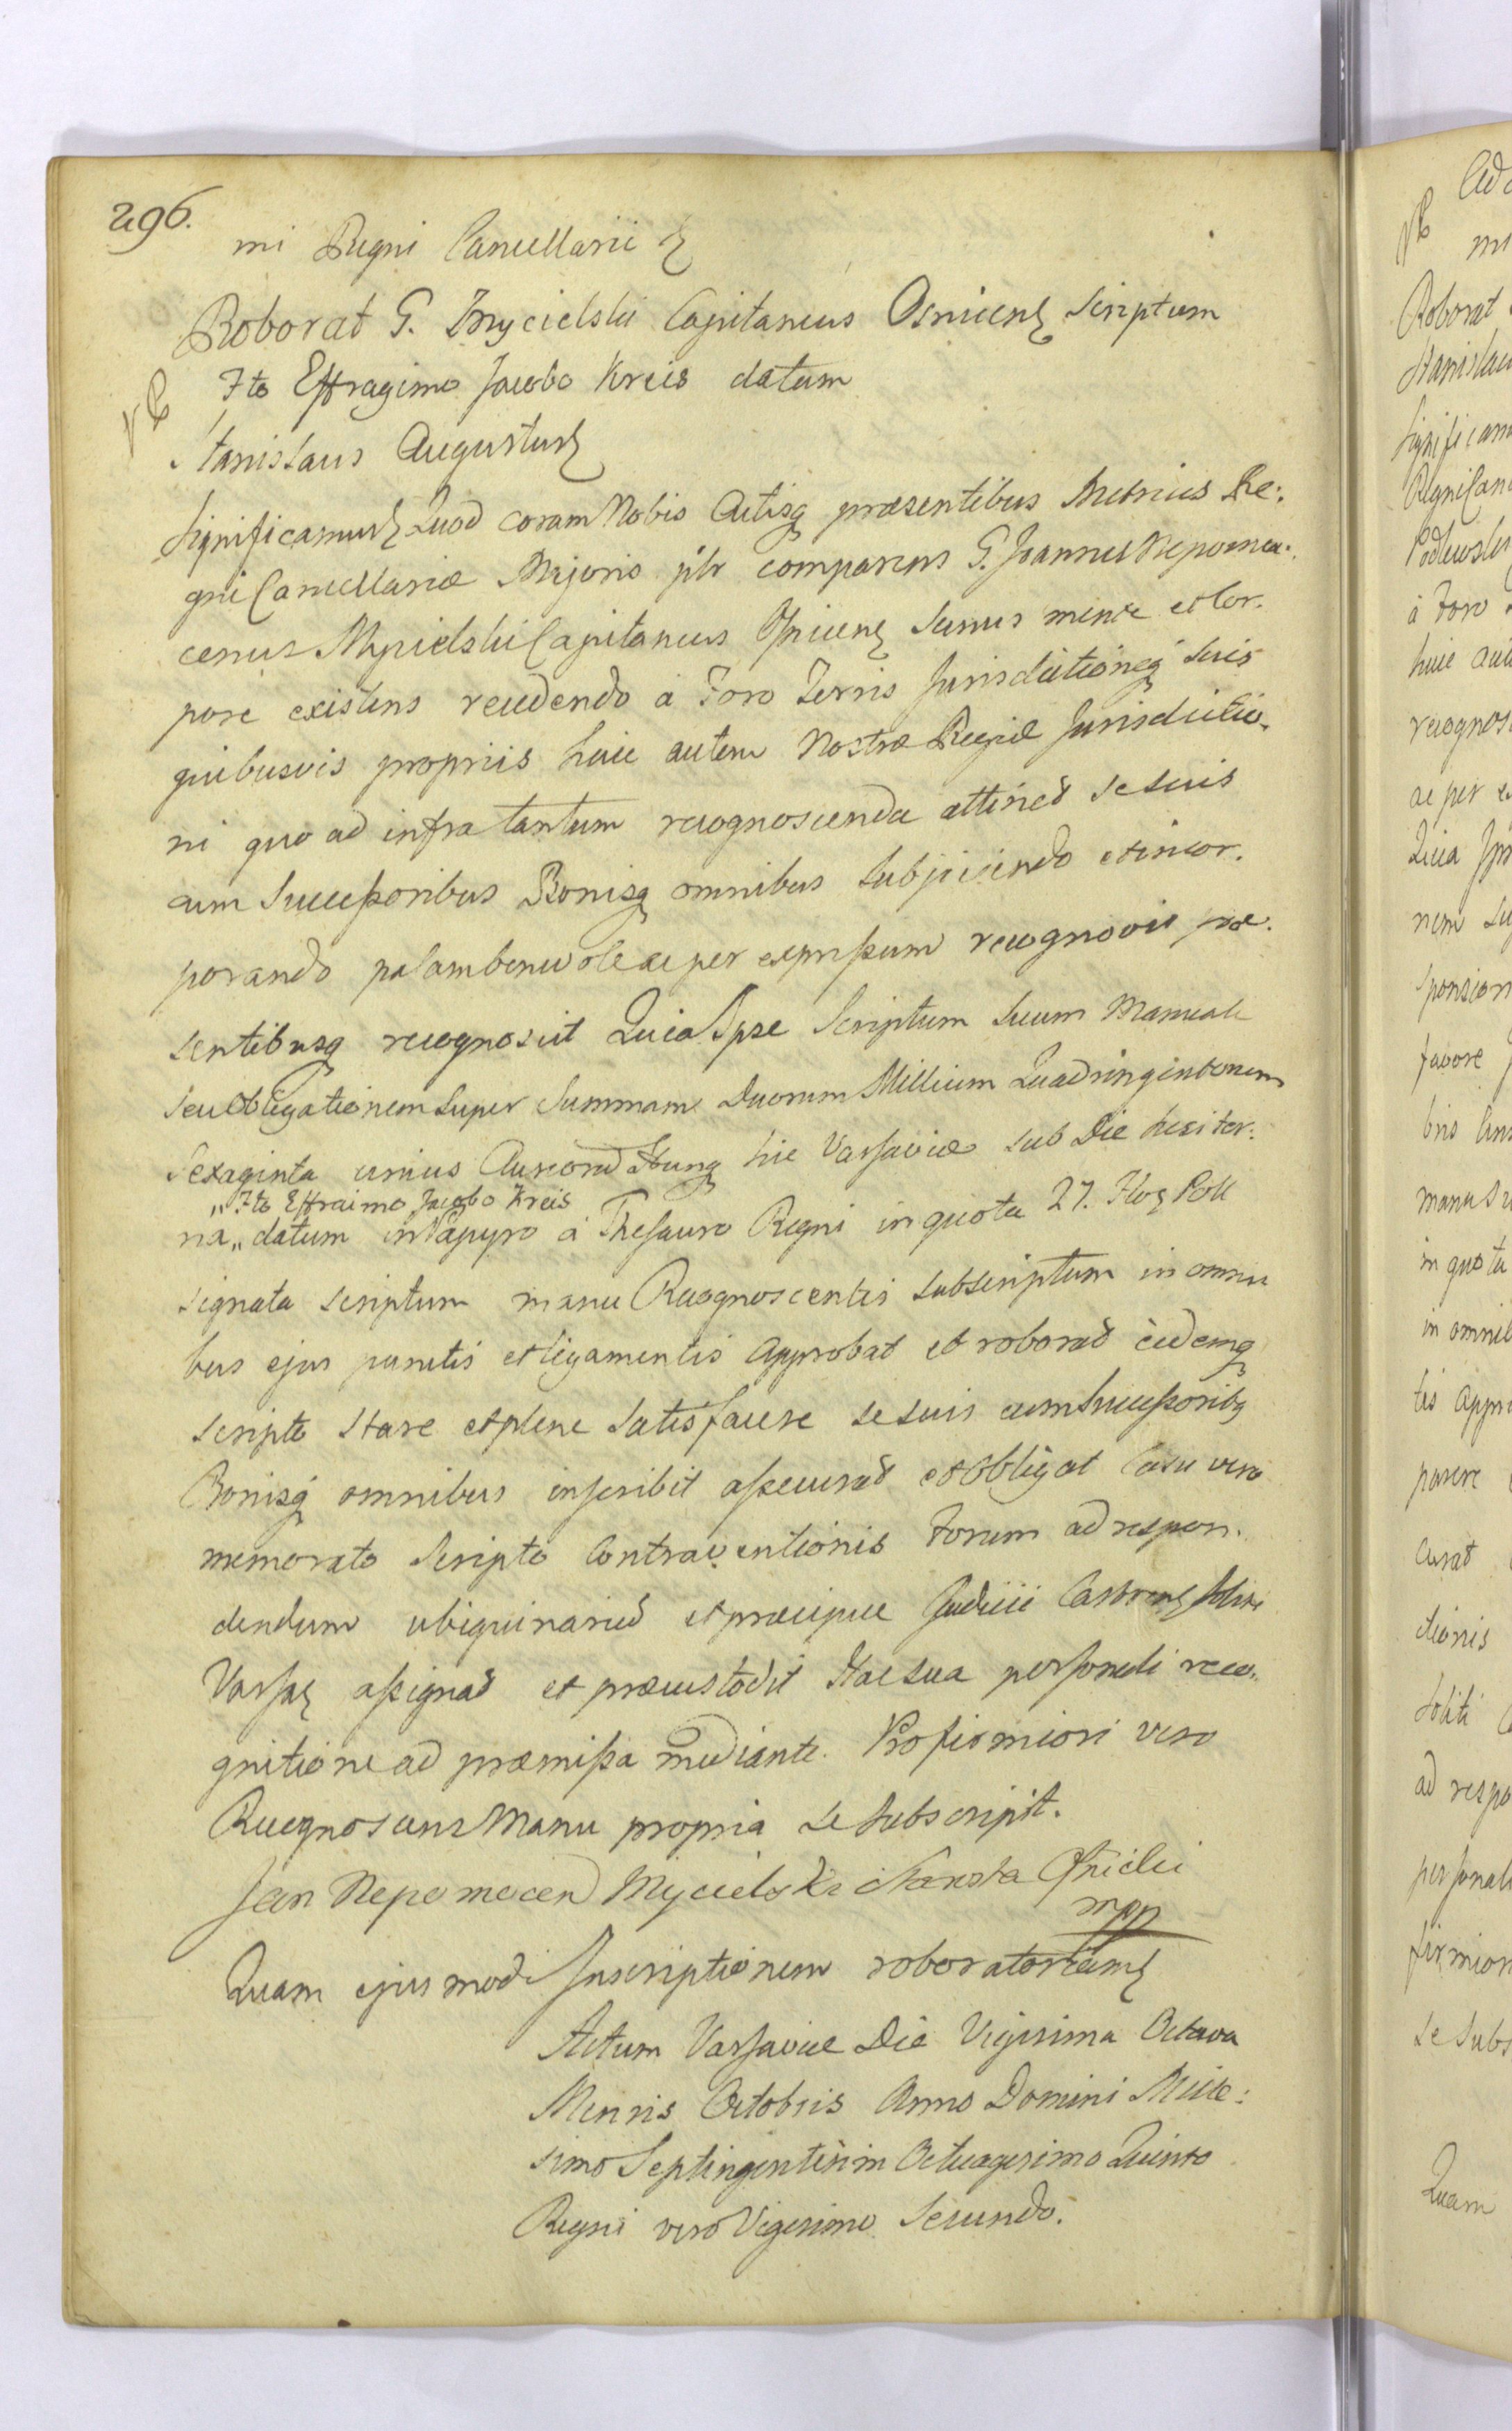 296.
mi Regni Cancellarii
Roborat G. Mycielski Capitaneus Osniceñ Scriptum
Ito Effragimo Jacobo Kreis datum
Stanislaus Augustus
Significamus Quod coram Nobis Actisq præsentibus Metrices Re:
gni Cancellariæ Majoris pltr comparens G. Joannes Nepomu:
cenus Mycielski Capitaneus Osniceñ Sanus mente et Cor:
pore existens recedendo à Foro Terris Jurisdictioneq Suis
quibusvis propriis huic autem Nostræ Regiæ Jurisdictio:
ni quo ad infra tantum recognoscenda attinet se suis
cum Successoribus Bonisq omnibus Subjiciendo et incor:
porando palam benevole ac per expressum recognovit præ:
sentibusq recognoscit Quia Ipse Scriptum Suum Manuale
seu Obligationem Super Summam Duorum Millium Quadringintorum
Sexaginta unius Aureorũ Hung hic Varsaviæ sub Die hesiter:
„Ito Effraimo Jacobo Kreis
na„ datum in Papyro à Thesauro Regni in quota 27. Flor Poll
signata scriptum manu Recognoscentis subscriptum in omni
bus ejus punctis et ligamentis Approbat et roborat eidemq
scripto stare et plene Satisfacere se suis cum Successoribq
Bonisq omnibus inscribit assecurat et Obligat Casu vero
memorato Scripto Contraventionis Forum ad respon:
dendum ubiquinariũ et præcipue Judicii Castreñ
Varsañ assignat et præcustodit Hac sua personali reco:
gnitione ad præmissa mediante. Pro firmiori vero
Recognoscens Manu propria se Subscripsit.
Jan Nepomocen Mycielski Starosta Ośnicki
mpp
Quam ejusmodi Inscriptionem roboratoriam
Actum Varsaviæ Die Vigesima Octava
Mensis Octobris Anno Domini Mille:
simo Septingentesim Octuagesimo Quinto
Regni vero Vigesimo Secundo.
Roborat
Significam
Regni Can
à Foro
huic aut
recognos
ac per e
Quia Ips
nem su
sponsion
favore
manu su
in quota
in omnib
tis Appro
parere
curat
ctionis
Soliti
ad respo
personali
firmiori
se Subs
Quam